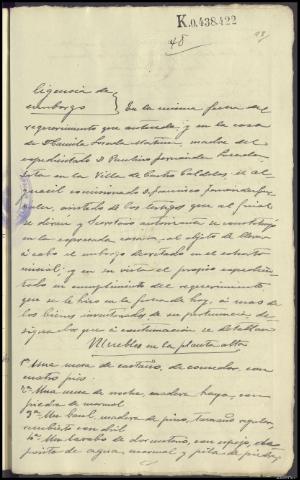 K.0.438.422
48
ligencia de
embargo } En la misma fecha del
requerimiento que antecede, y en la casa
de Camila Losada madre del
expedientado D. Fernández Losada
sita en la Villa de Castro Caldelas, el al-
guacil comisionado D. Francisco
asistido de los testigos que al final
se dirán y Secretario autorizante se constituyó
en la expresada casa, al objeto de llevar
a cabo el embargo decretado en el
inicial, y en su vista el propio expedien-
tado en cumplimiento del requerimiento
que se le hizo en la fecha de hoy, a más de
los bienes inventariados de su pertenencia
que a continuación se detallan
Muebles en la planta alta
1º Una mesa de castaño, de comedor, con
cuatro pies
2º Una mesa de noche, madera haya, con
piedra de marmol
3º Un baul, madera de pino, tamaño regular,
cubierto con
4º Un lavabo de dormitorio, con espejo, de-
posito de agua, marmol y pila de piedra,